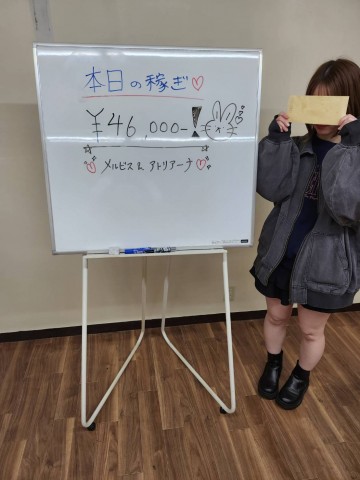 本日の稼ぎ♡
¥46,000-!
メルビス & アトリアーナ